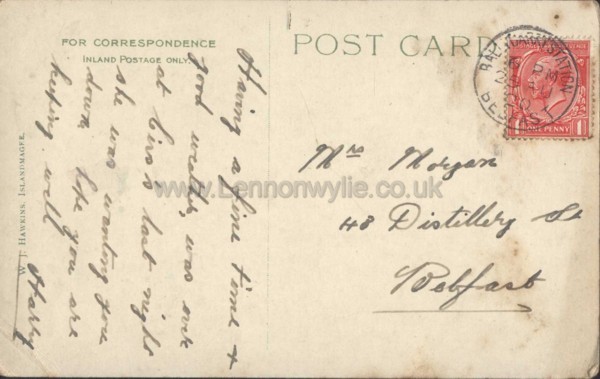 FOR CORRESPONDENCE
INLAND POSTAGE ONLY.
POST CARD
W. J. HAWKINS, ISLANDMAGEE.
Having a fine time &
good weather, was over
at Ciss's last night
she was wanting you
down hope you are
keeping well
Harry
Mrs Morgan
48 Distillery St
Belfast
RAILWAY STATION
BELFAST
ONE PENNY
1
www.Lennonwylie.co.uk